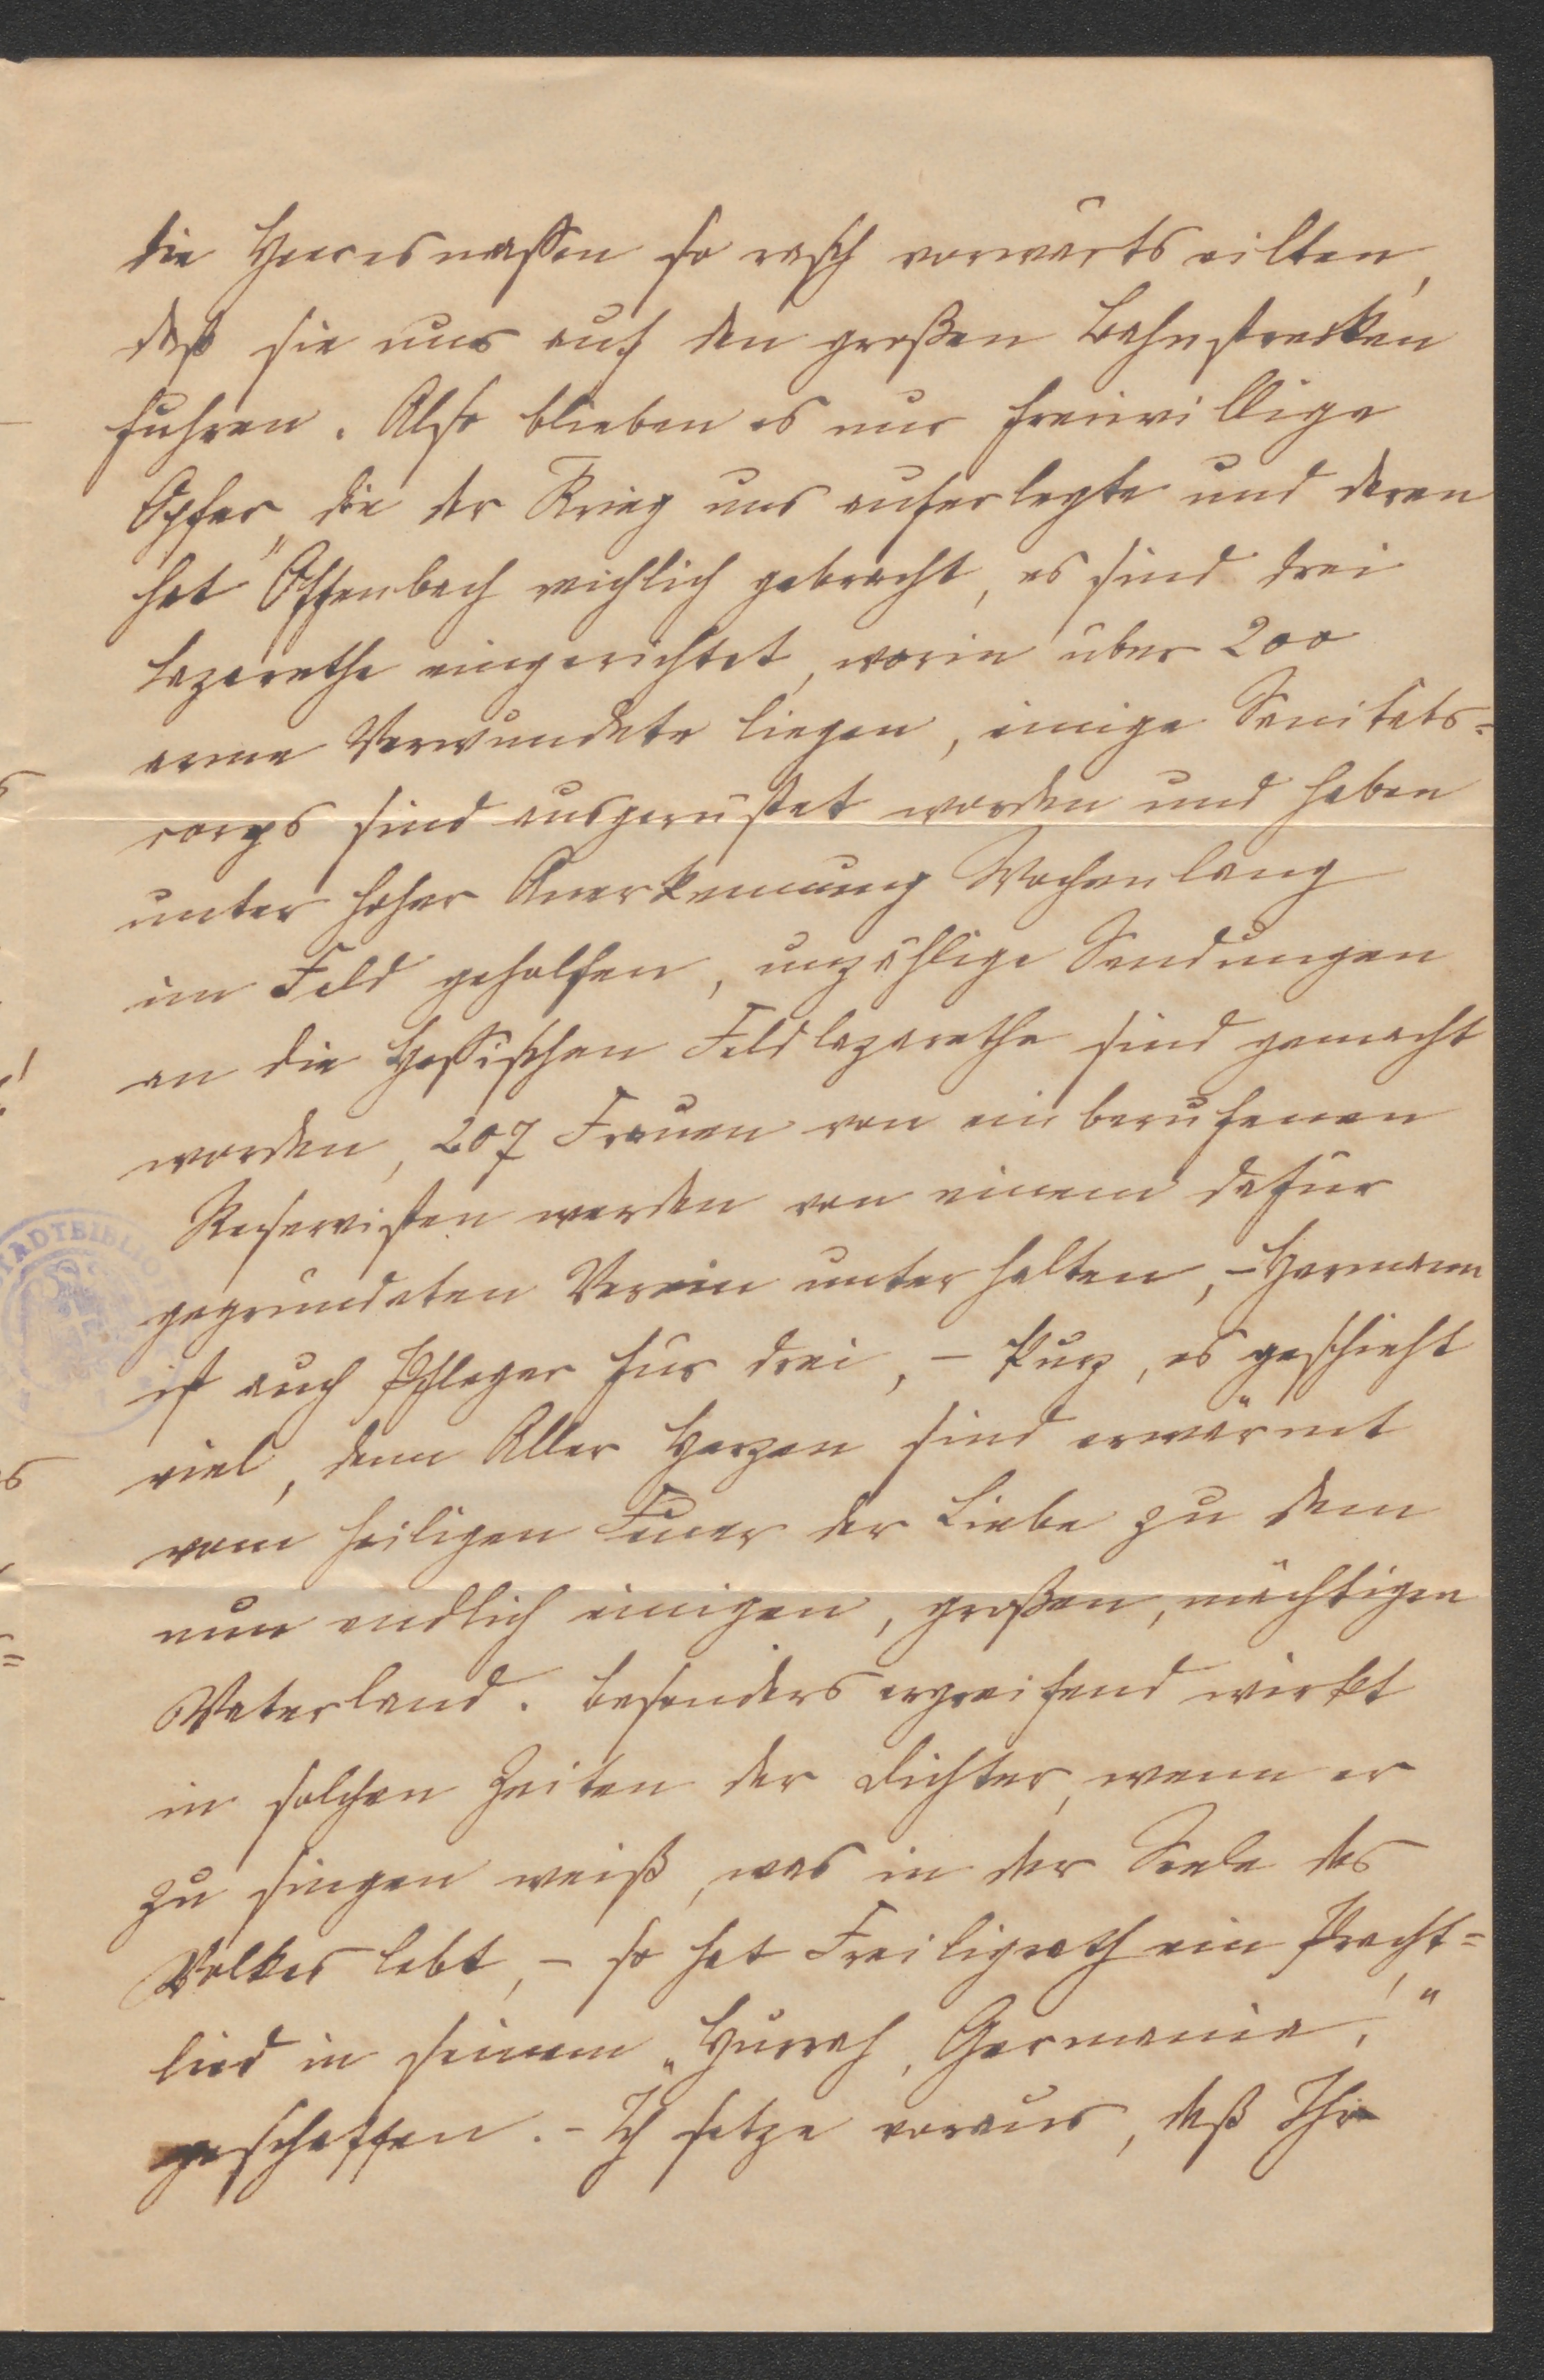 die Heeresmassen so rasch vorwärts eilten,
daß sie nur auf den großen Bahnstrecken
fuhren. Also blieben es nur freiwillige
Opfer, die der Krieg uns auferlegte und deren
hat Offenbach reichlich gebracht, es sind drei
Lazarethe eingerichtet, worin über 200
arme Verwundete liegen, einige Sanitäts=
corps sind ausgerüstet worden und haben
unter hoher Anerkennung Wochenlang
im Feld geholfen, unzählige Sendungen
an die Hessischen Feldlazarethe sind gemacht
worden, 207 Frauen von einberufenen
Reservisten werden von einem dafür
gegründeten Verein unterhalten, – Hermann
ist auch Pfleger für drei, – kurz, es geschieht
viel, denn Aller Herzen sind erwärmt
vom heiligen Feuer der Liebe zu dem
nun endlich einigen, großen, mächtigen
Vaterland. Besonders ergreifend wirkt
in solchen Zeiten der Dichter, wenn er
zu singen weiß, was in der Seele des
Volkes lebt, – so hat Freiligrath ein Pracht=
lied in seinem „Hurrah, Germania!"
geschaffen. – Ich setze voraus, daß Ihr
STADTBIBLIO